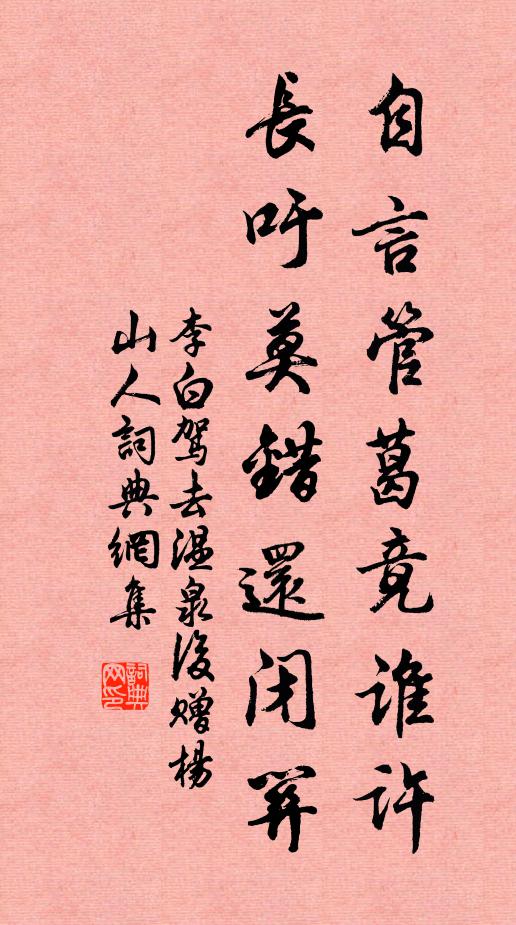 自言管葛竟誰許
長吁莫錯還閉關
李白駕去温泉後贈楊
山人詞典網集
詞典
网印